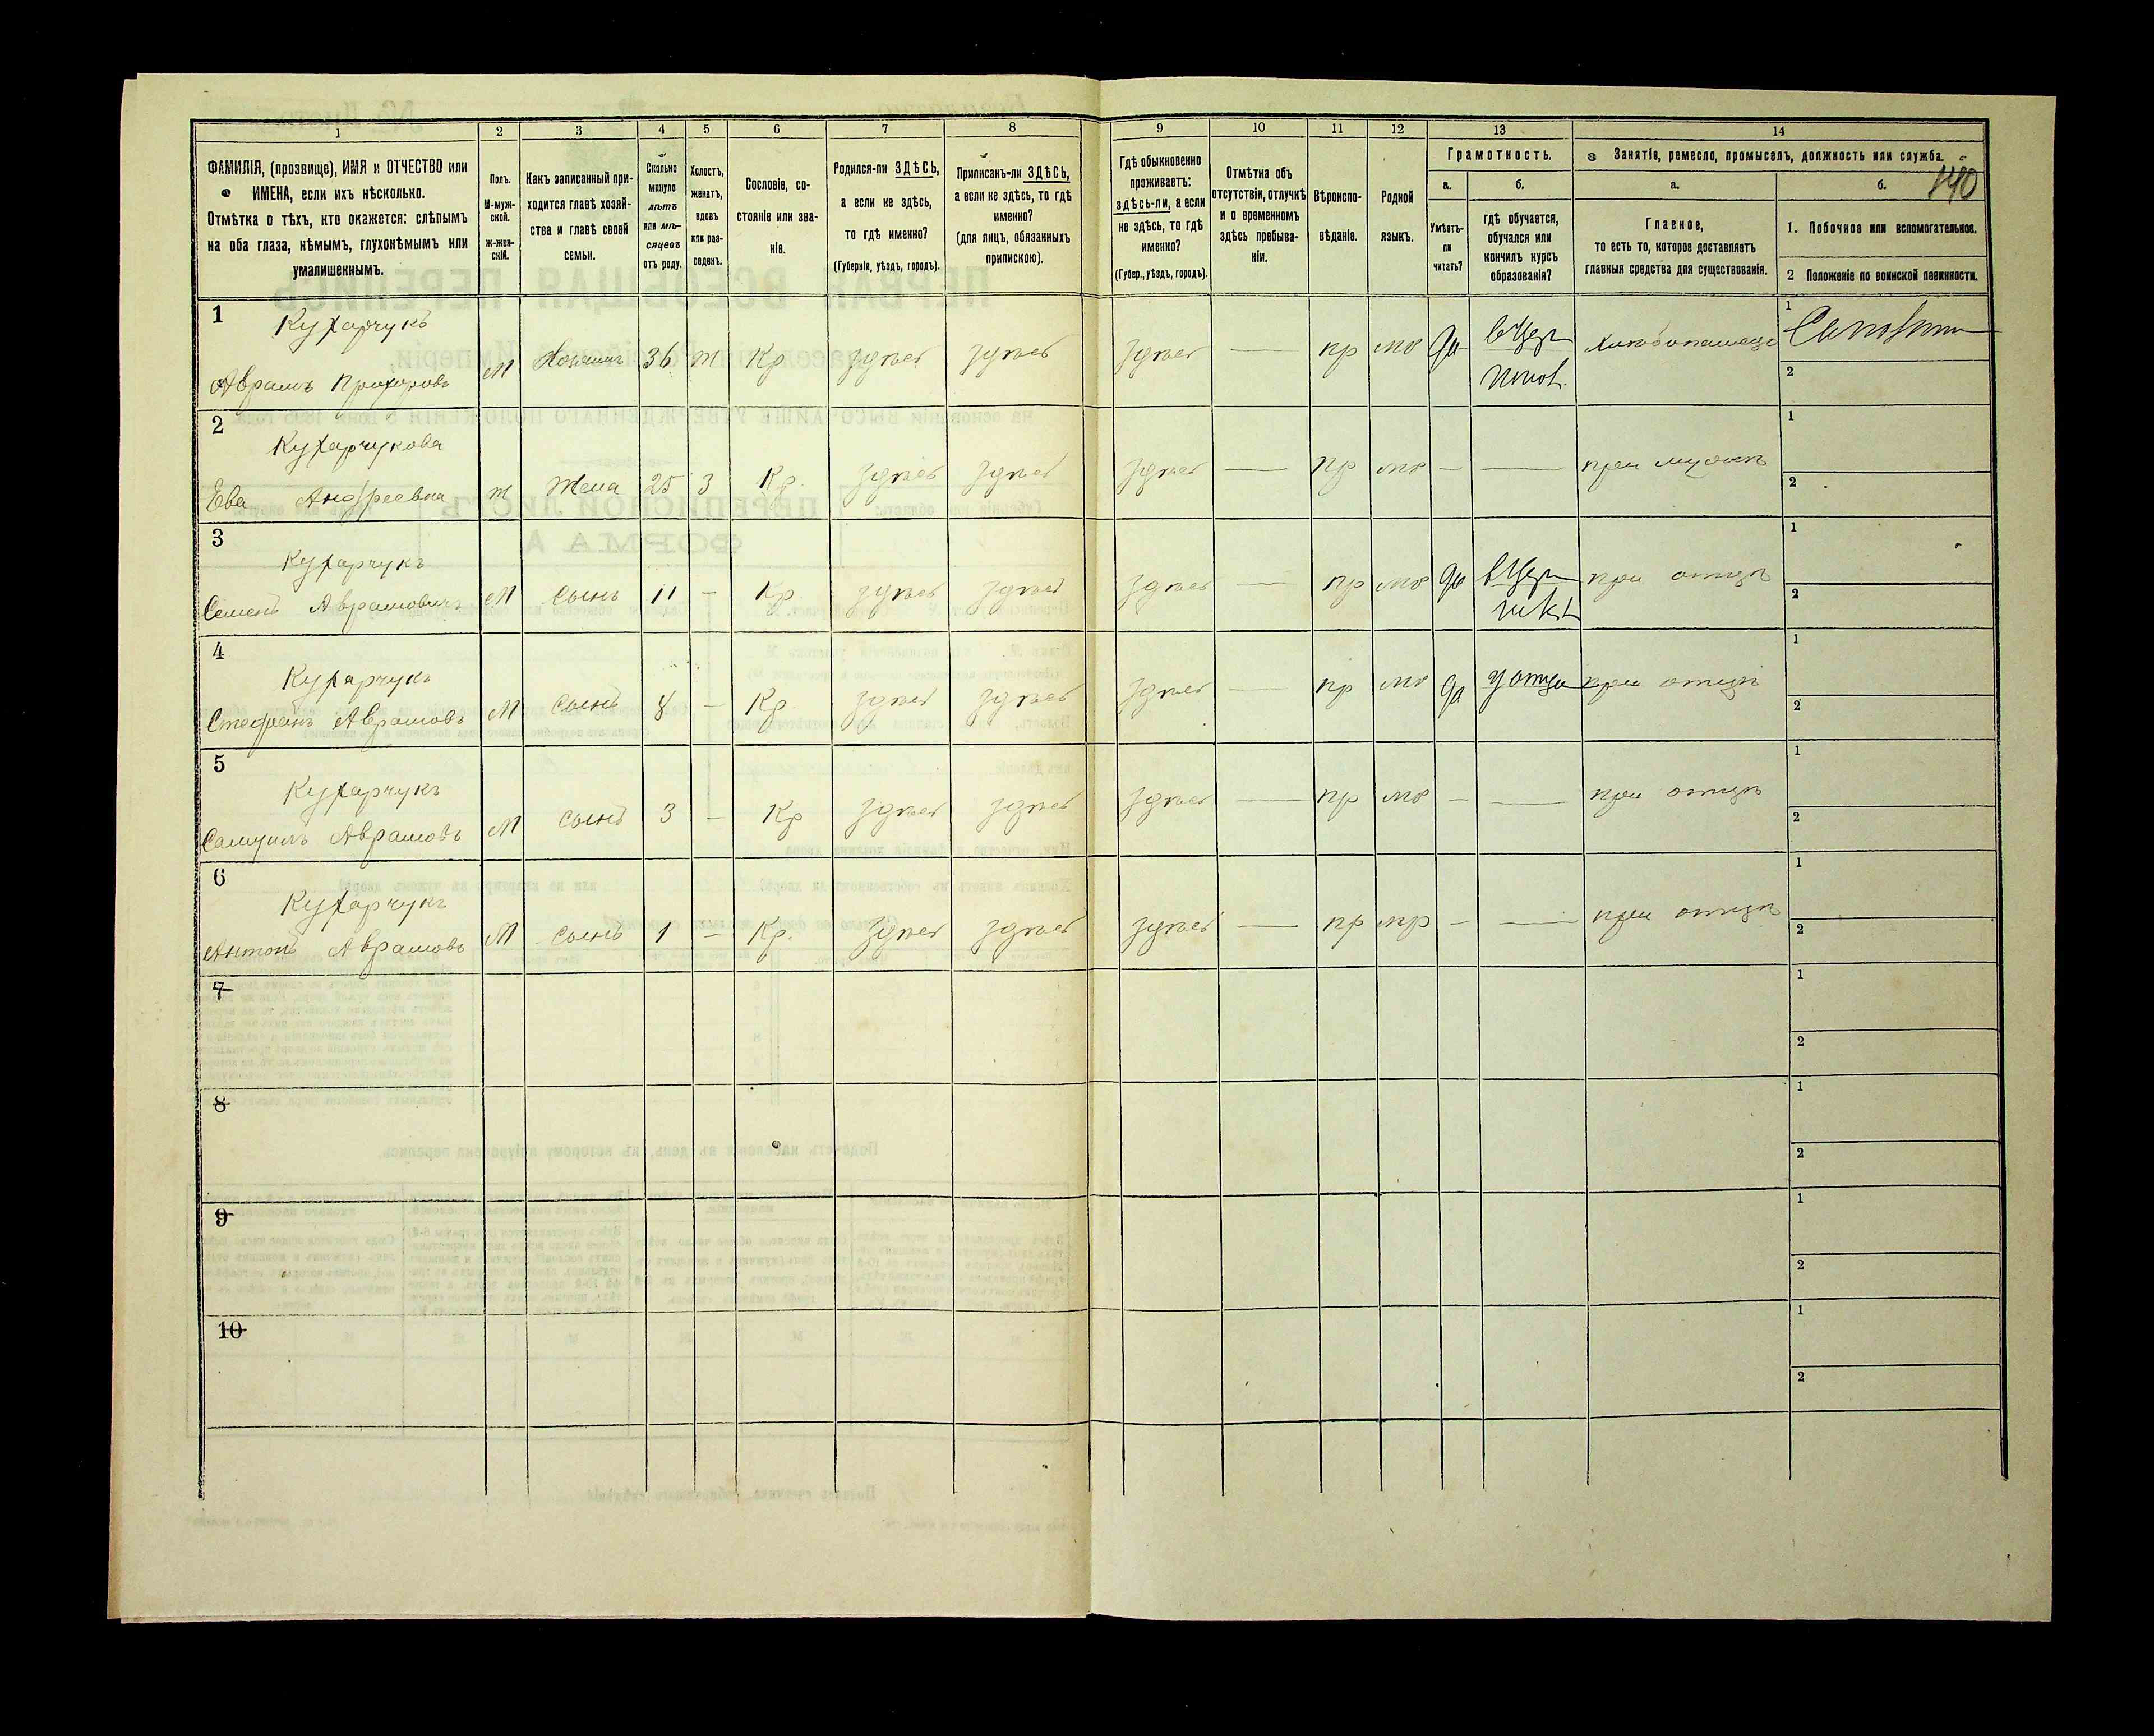 1 2 3 4 5 6 7 8 9 10 11 12 13 14
ФАМИЛІЯ, (прозвище), ИМЯ и ОТЧЕСТВО или
ИМЕНА, если ихъ нѣсколько.
Отмѣтка о тѣхъ, кто окажется: слѣпымъ
на оба глаза, нѣмымъ, глухонѣмымъ или
умалишеннымъ.
Полъ.
М-муж-
ской.
Ж-жен-
скій.
Какъ записанный при-
ходится главѣ хозяй-
ства и главѣ своей
семьи.
Сколько
минуло
лѣтъ
или мѣ-
сяцевъ
отъ роду.
Холостъ,
женатъ,
вдовъ
или раз-
веденъ.
Сословіе, со-
стояніе или зва-
ніе.
Родился-ли ЗДѢСЬ,
а если не здѣсь,
то гдѣ именно?
(Губернія, уѣздъ, городъ).
Приписанъ-ли ЗДѢСЬ,
а если не здѣсь, то гдѣ
именно?
(для лицъ, обязанныхъ
припискою).
Гдѣ обыкновенно
проживаетъ:
здѣсь-ли, а если
не здѣсь, то гдѣ
именно?
(Губер., уѣздъ, городъ).
Отмѣтка объ
отсутствіи, отлучкѣ
и о временномъ
здѣсь пребыва-
ніи.
Вѣроиспо-
вѣданіе.
Родной
языкъ.
Грамотность.
а.
Умѣетъ-
ли
читать?
б.
гдѣ обучается,
обучался или
кончилъ курсъ
образованія?
Занятіе, ремесло, промыселъ, должность или служба.
140
а.
Главное,
то есть то, которое доставляетъ
главныя средства для существованія.
б.
1. Побочное или вспомогательное.
2 Положеніе по воинской повинности.
1 Кухарчукъ
Аврамъ Прохоровъ М Хозяинъ 36 ж Кр здѣсь здѣсь здѣсь — пр мр да хлѣбопашецъ
1
2
2 Кухарчукова
Ева Андреевна ж жена 25 з Кр. здѣсь здѣсь здѣсь — пр мр — — при мужѣ
1
2
3 Кухарчукъ
Семенъ Аврамовичъ М сынъ 11 — Кр. здѣсь здѣсь здѣсь — пр мр да при отцѣ
1
2
4 Кухарчукъ
Стефанъ Аврамовъ М сынъ 8 — Кр здѣсь здѣсь здѣсь — пр мр да у отца при отцѣ
1
2
5 Кухарчукъ
Самуилъ Аврамовъ М сынъ 3 — Кр здѣсь здѣсь здѣсь — пр мр — — при отцѣ
1
2
6 Кухарчукъ
Антонъ Аврамовъ М сынъ 1 — Кр. здѣсь здѣсь здѣсь — пр мр — — при отцѣ
1
2
7
1
2
8
1
2
9
1
2
10
1
2